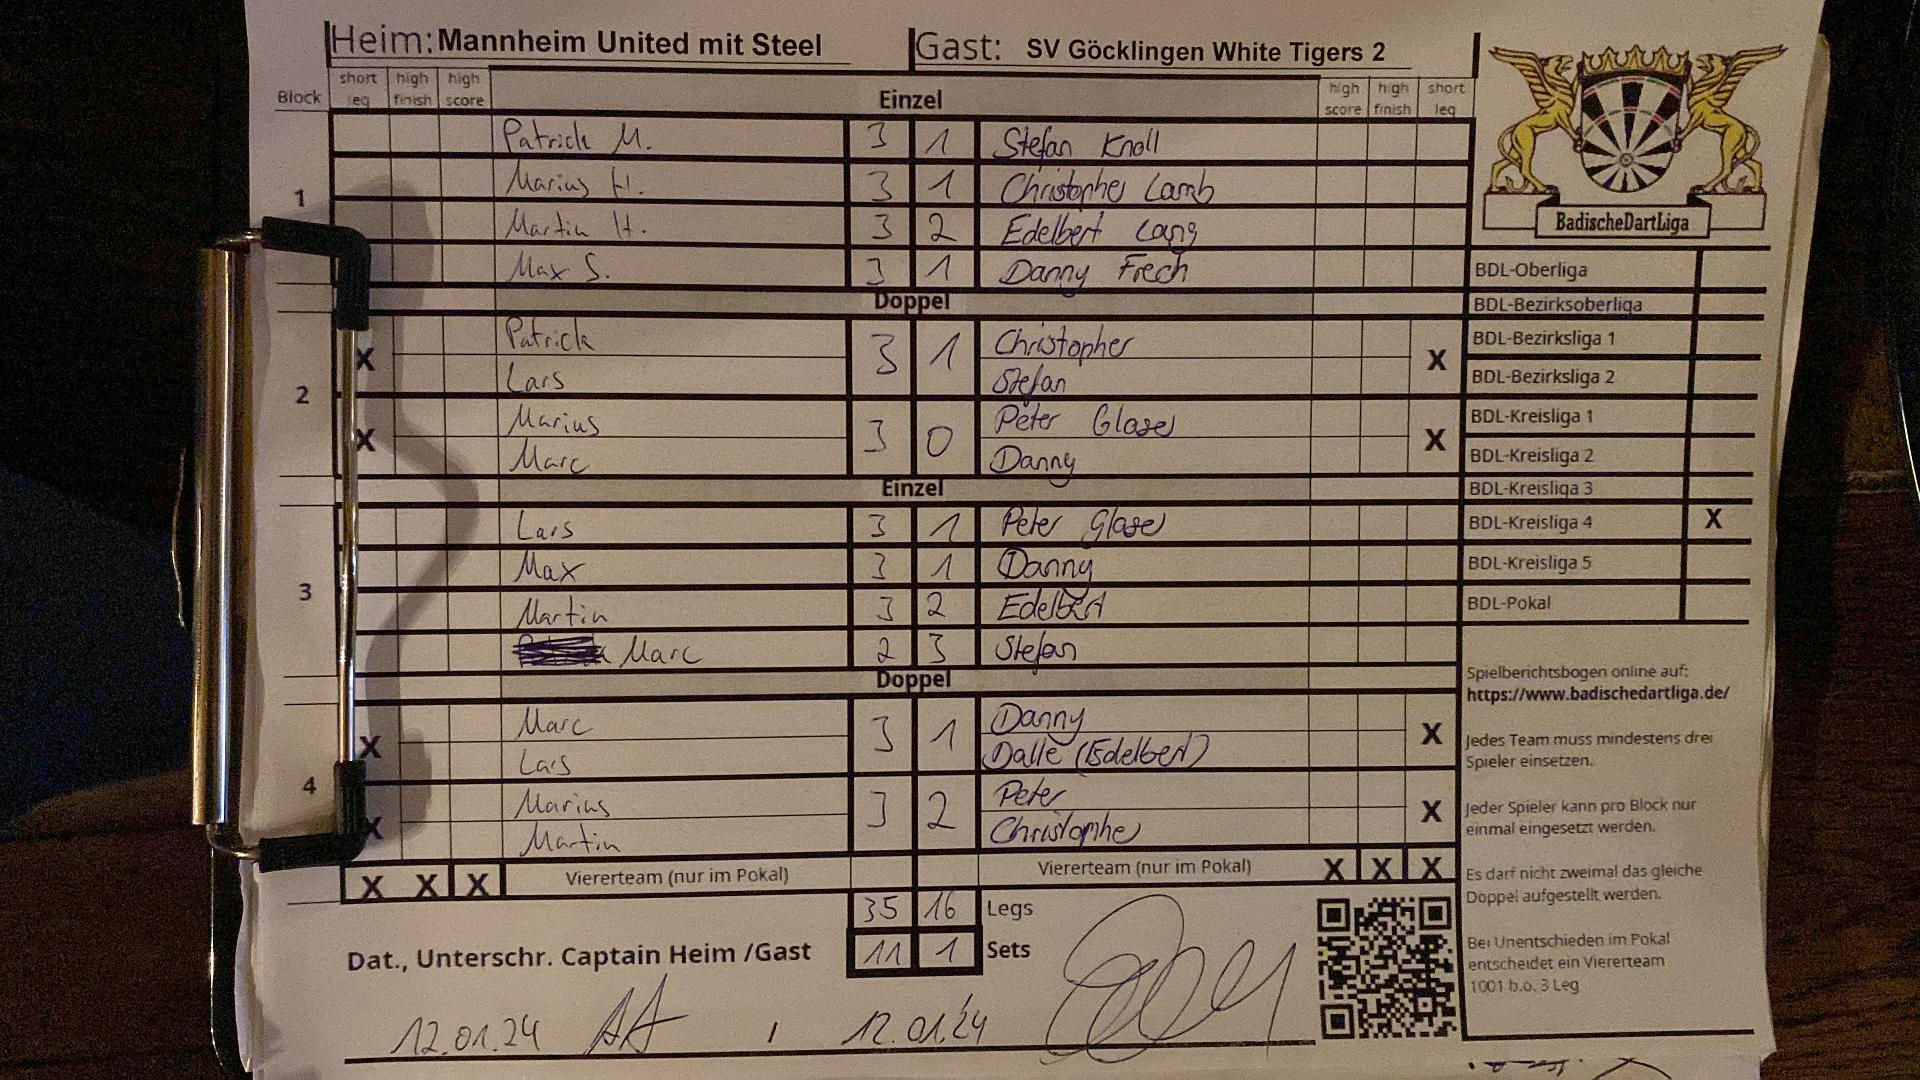 Heim: Mannheim United mit Steel Gast: SV Göcklingen White Tigers 2
Block short leg high finish high score Einzel high score high finish short leg
1
Patrick M. 3 1 Stefan Knoll
Marius H. 3 1 Christopher Lamb
Martin H. 3 2 Edelbert Lang
Max S. 3 1 Danny Frech
Doppel
2
X Patrick 3 1 Christopher X
Lars Stefan
X Marius 3 0 Peter Glaser X
Marc Danny
Einzel
3
Lars 3 1 Peter Glaser
Max 3 1 Danny
Martin 3 2 Edelbert
Marc 2 3 Stefan
Doppel
4
X Marc 3 1 Danny X
Lars Dalle (Edelbert)
X Marius 3 2 Peter X
Martin Christopher
X X X Viererteam (nur im Pokal) Viererteam (nur im Pokal) X X X
35 16 Legs
11 1 Sets
Dat., Unterschr. Captain Heim /Gast
12.01.24 , 12.01.24
BadischeDartLiga
BDL-Oberliga
BDL-Bezirksoberliga
BDL-Bezirksliga 1
BDL-Bezirksliga 2
BDL-Kreisliga 1
BDL-Kreisliga 2
BDL-Kreisliga 3
BDL-Kreisliga 4 X
BDL-Kreisliga 5
BDL-Pokal
Spielberichtsbogen online auf:
https://www.badischedartliga.de/
Jedes Team muss mindestens drei
Spieler einsetzen.
Jeder Spieler kann pro Block nur
einmal eingesetzt werden.
Es darf nicht zweimal das gleiche
Doppel aufgestellt werden.
Bei Unentschieden im Pokal
entscheidet ein Viererteam
1001 b.o. 3 Leg